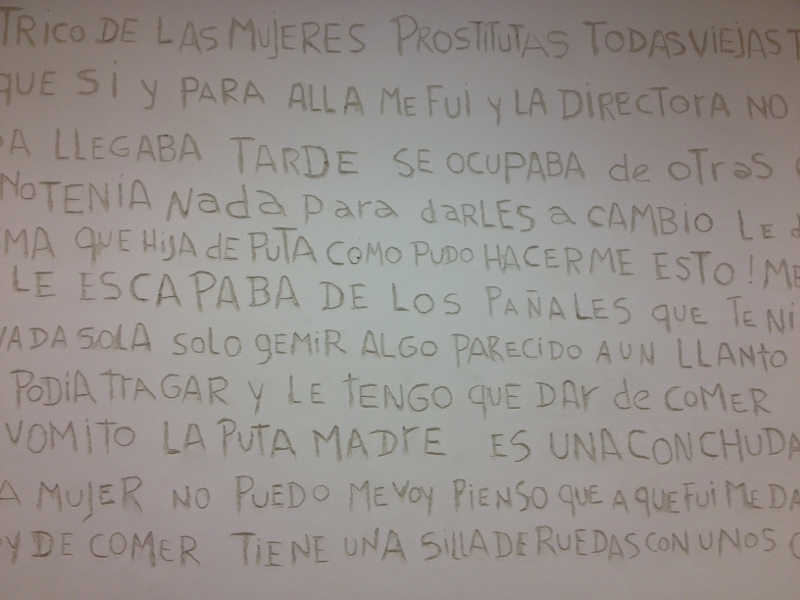 TRICO DE LAS MUJERES PROSTITUTAS TODAS VIEJAS T
QUE SI Y PARA ALLA ME FUI Y LA DIRECTORA NO
A LLEGABA TARDE SE OCUPABA de OTRAS
NO TENIA Nada para darLES a CAMBIO LE d
MA QUE HIJA dE PUTA COMO PUDO HACERME ESTO! ME
LE ESCAPABA DE LOS PAÑALES QUE TENI
VADA SOLA SOLO gEMIR ALGO PARECIDO A UN LLANTO
PODIA TRAGAR Y LE TENGO QUE DAR de COMER
VOMITO LA PUTA MADrE ES UNA CONCHUDA
A MUJER NO PUEDO ME VOY PIENSO QUE A QUE FUI ME DA
Y DE COMER TIENE UNA SILLA DE RUEDAS CON UNOS